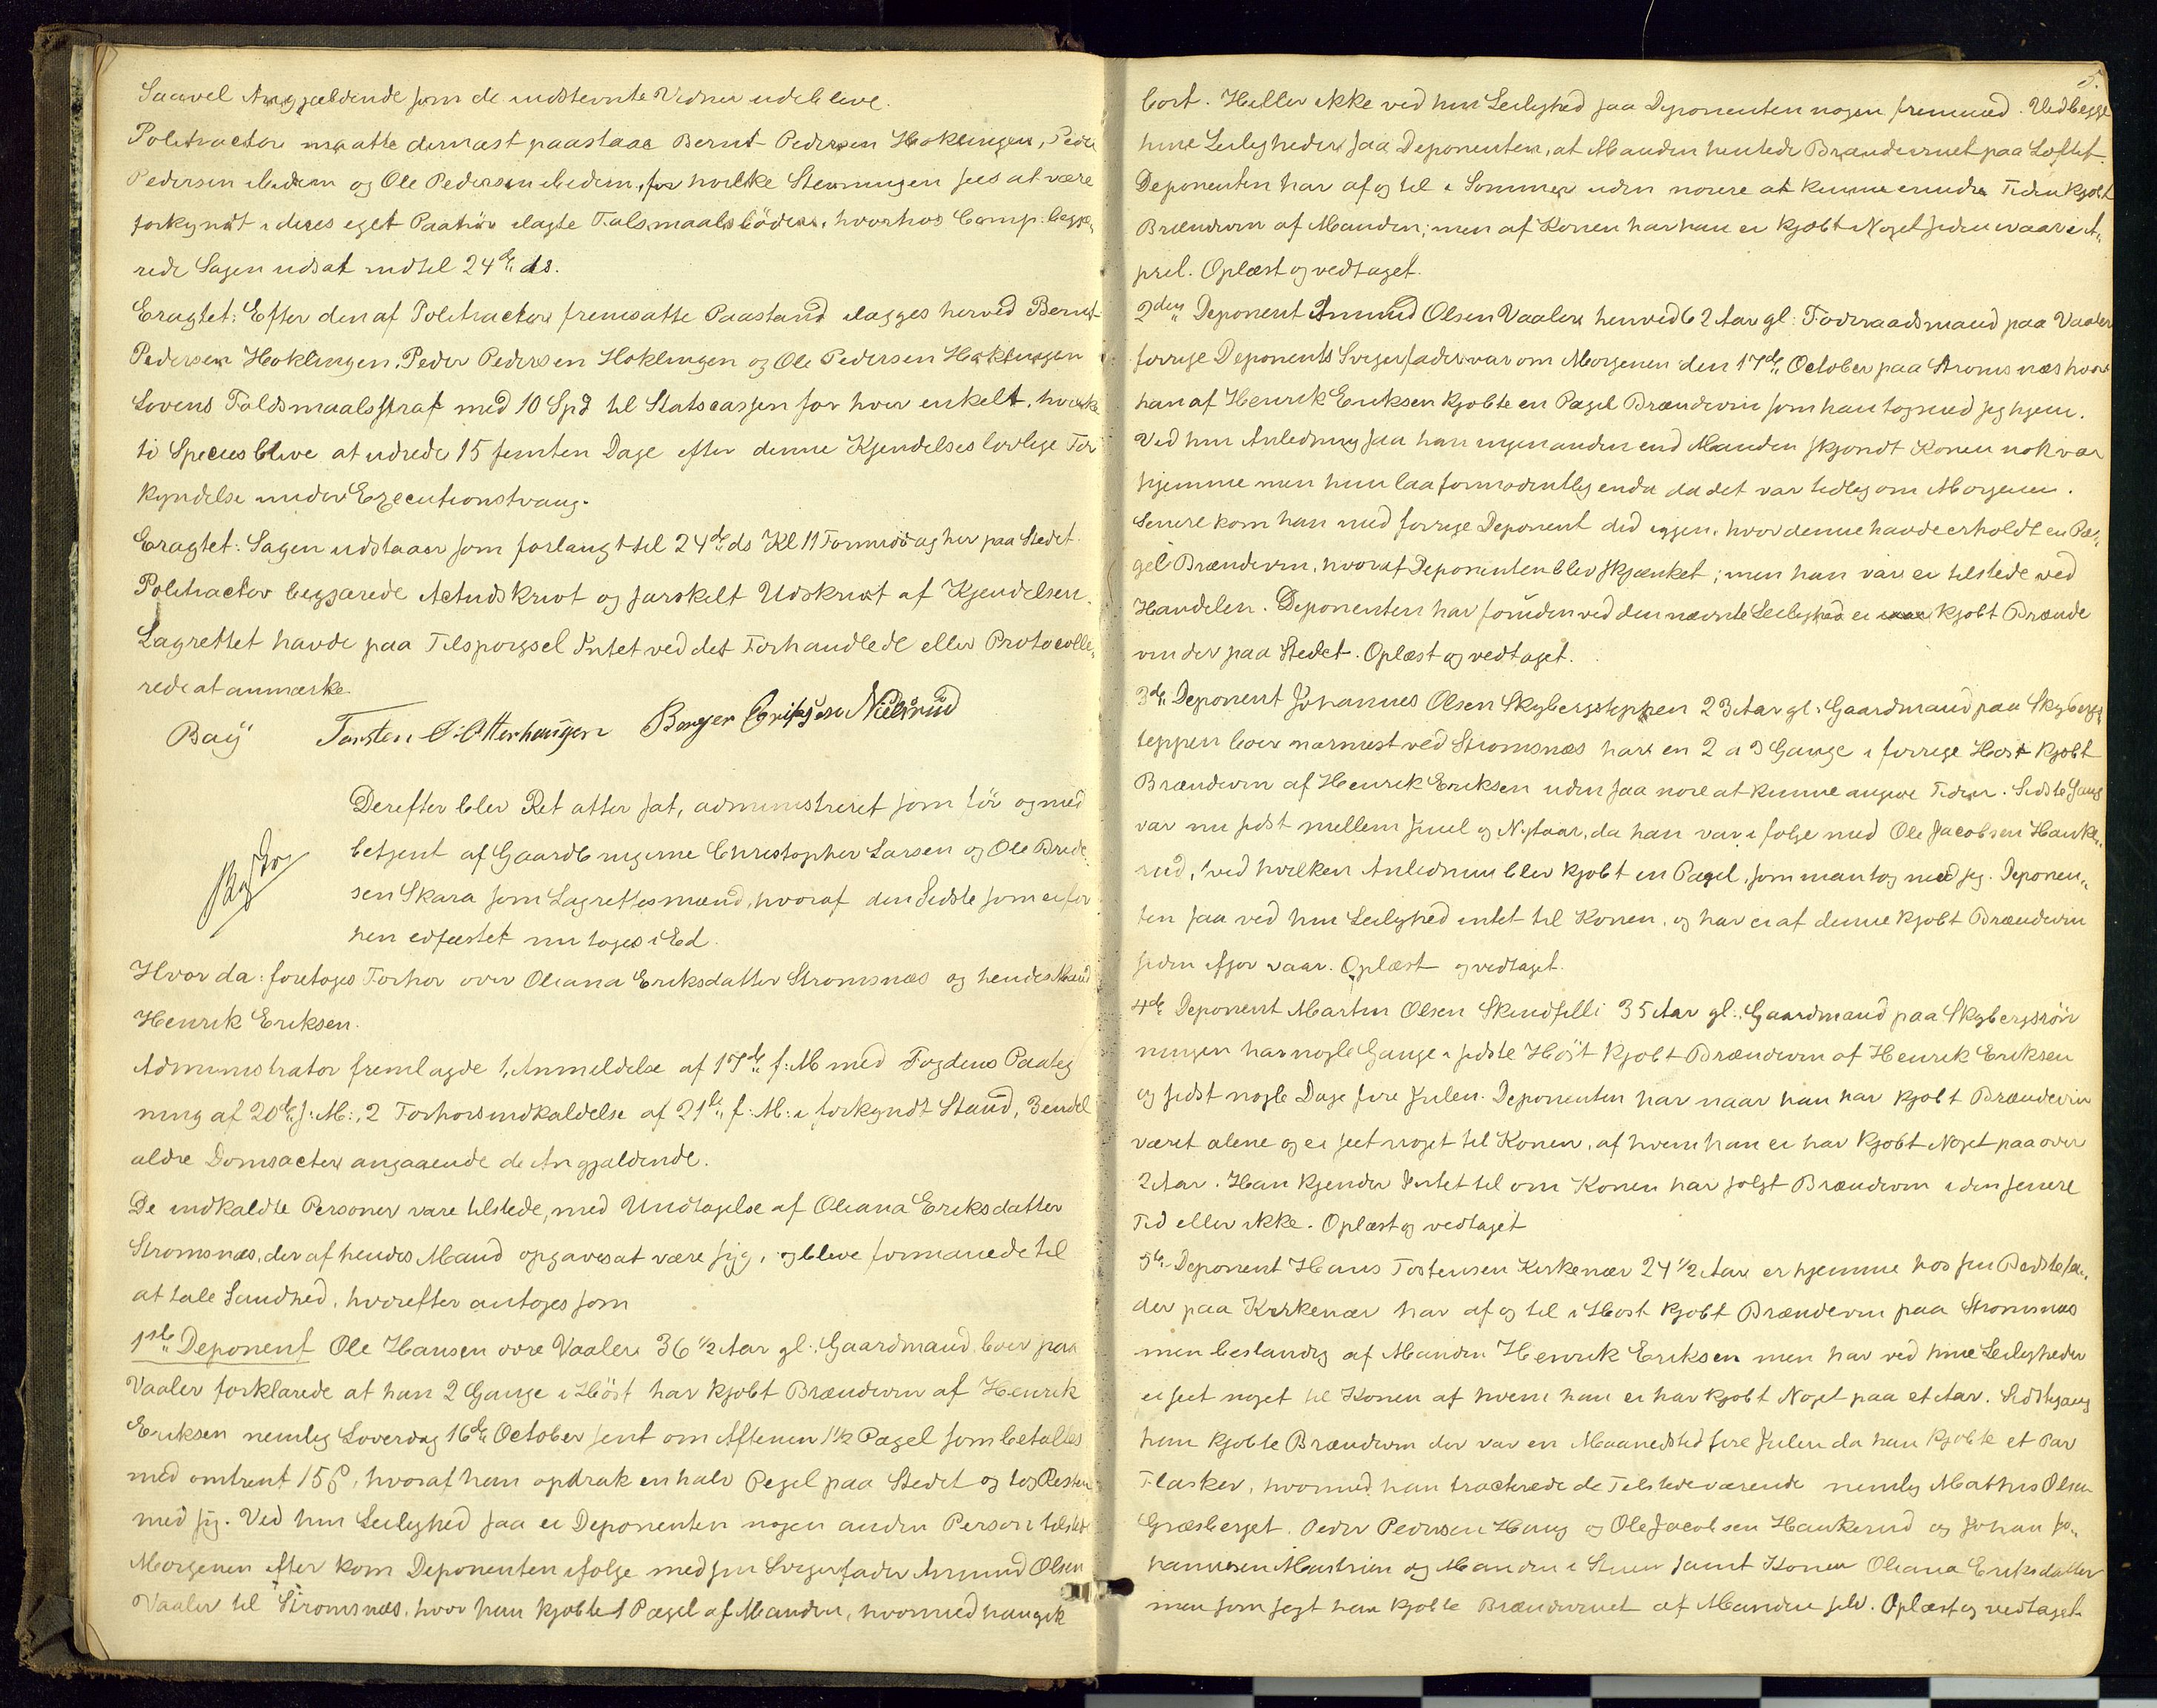 Saavel Angjældende som de indstevnte Vidner udebleve.
Politiactor maatte dernæst paastaae Bernt Pedersen Hoklingen, Peder
Pedersen ibidem og Ole Pedersen ibidem, for hvilke Stevningen sees at være
forkyndt i deres eget Paahør ilagte Falsmaalsbøder, hvorhos Comp: begjæ„
rede Sagen udsat indtil 24de ds.
Eragtet: Efter den af Politiactor fremsatte Paastand ilægges herved Bernt
Pedersen Hoklingen, Peder Pedersen Hoklingen og Ole Pedersen Hoklingen
Lovens Faldsmaalsstraf med 10 Spd til Statscassen for hver enkelt, hvilke
ti Species blive at udrede 15 femten Dage efter denne Kjendelses lovlige For
kyndelse under Executionstvang.
Eragtet: Sagen udstaaer som forlangt til 24de ds Kl 11 Formiddag her paa Stedet.
Politiactor begjærede Actudskrivt og særskilt Udskrivt af Kjendelsen.
Lagrettet havde paa Tilspørgsel Intet ved det Forhandlede eller Protocolle„
rede at anmærke.
Baÿ Torsten O: Otterhaugen Berger Erichsen Nilsrud
Derefter blev Ret atter sat, administreret som før og med
betjent af Gaardbrugerne Christopher Larsen og Ole Brede
sen Skara som Lagrettesmænd, hvoraf den Sidste som ei før
hen edfæstet nu toges i Ed.
Hvor da: foretoges Forhør over Oleana Eriksdatter Strømsnæs og hendes Mand
Henrik Eriksen.
Administrator fremlagde 1, Anmeldelse af 17de f: M med Fogdens Paateg
ning af 20de f: M:, 2 Forhørsindkaldelse af 21de f: M: i forkyndt Stand, 3 endel
ældre Domsacter angaaende de Angjældende.
De indkaldte Personer vare tilstede, med Undtagelse af Oleana Eriksdatter
Strømsnæs, der af hendes Mand opgaves at være syg, og bleve formanede til
at tale Sandhed, hvorefter antoges som
1ste Deponent Ole Hansen øvre Vaaler 36 1/2 Aar gl:, Gaardmand, boer paa
Vaaler forklarede at han 2 Gange i Høst har kjøbt Brændevin af Henrik
Eriksen nemlig Løverdag 16de October sent om Aftenen 1 1/2 Pægel som betaltes
med omtrent 15 ß, hvoraf han opdrak en halv Pegel paa Stedet og tog Resten
med sig. Ved hin Leilighed saa ei Deponenten nogen anden Person tilstede
Morgenen efter kom Deponenten ifølge med sin Svigerfader Amund Olsen
Vaaler til Strømsnæs, hvor han kjøbte 1 Pægel af Manden, hvormed han gik
5.
bort. Heller ikke ved hin Leilighed saa Deponenten nogen fremmed. Ved begge
hine Leiligheder saa Deponenten, at Manden hentede Brændevinet paa Loftet.
Deponenten har af og til i Sommer uden nøiere at kunne erindre Tiden kjøbt
Brændevin af Manden; men af Konen har han ei kjøbt Noget siden ivaar i A„
pril. Oplæst og vedtaget.
2den Deponent Amund Olsen Vaaler henved 62 Aar gl: Føderaadsmand paa Vaaler
forrige Deponents Svigerfader var om Morgenen den 17de October paa Strømsnæs hvor
han af Henrik Eriksen kjøbte en Pægel Brændevin som han tog med sig hjem.
Ved hin Anledning saa han ingen anden end Manden skjøndt Konen nok var
hjemme men hun laa formodentlig endnu da det var tidlig om Morgenen.
Senere kom han med forrige Deponent did igjen, hvor denne havde erholdt en Pæ„
gel Brændevin, hvoraf Deponenten blev skjænket; men han var ei tilstede ved
Handelen. Deponenten har foruden ved den nævnte Leilighed ei kjøbt Brænde
vin der paa Stedet. Oplæst og vedtaget.
3de Deponent Johannes Olsen Skybergsteppen 23 Aar gl: Gaardmand paa Skybergs
teppen boer nærmest ved Strømsnæs har en 2 a 3 Gange i forrige Høst kjøbt
Brændevin af Henrik Eriksen uden saa nøie at kunne angive Tiden. Sidste Gang
var nu sidst mellem Juul og Nytaar, da han var i følge med Ole Jacobsen Hanke„
rud, ved hvilken Anledning blev kjøbt en Pægel, som man tog med sig. Deponen„
ten saa ved hin Leilighed intet til Konen, og har ei af denne kjøbt Brændevin
siden ifjor vaar. Oplæst og vedtaget.
4de Deponent Martin Olsen Skindfelli 35 Aar gl:, Gaardmand paa Skybergsrön
ningen har nogle Gange i sidste Höst kjøbt Brændevin af Henrik Eriksen
og sidst nogle Dage føre Julen. Deponenten har naar han har kjøbt Brændevin
været alene og ei seet noget til Konen, af hvem han ei har kjøbt Noget paa over
2 Aar. Han kjender Intet til om Konen har solgt Brændevin i den senere
Tid eller ikke. Oplæst og vedtaget
5te Deponent Hans Tostensen Kirkenær 24 1/2 Aar er hjemme hos sin Bedstefa„
der paa Kirkenær har af og til i Høst kjøbt Brændevin paa Strømsnæs
men bestandig af Manden Henrik Eriksen men har ved hine Leiligheder
ei seet noget til Konen af hvem han ei har kjøbt Noget paa et Aar. Sidstegang
han kjøbte Brændevin der var en Maanedstid føre Julen da han kjøbte et Par
Flasker, hvormed han tracterede de Tilstedeværende nemlig Mathis Olsen
Græsberget, Peder Pedersen Haug og Ole Jacobsen Hankerud og Johan Jo„
hannesen og Manden i Stuen samt Konen Oleana Eriksdatter
men som sagt han kjøbte Brændevinet af Manden selv. Oplæst og vedtaget